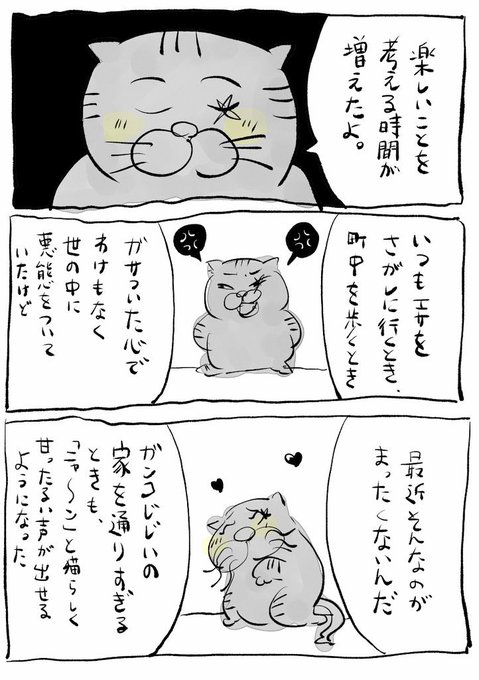 楽しいことを
考える時間が
増えたよ。
いつもエサを
さがしに行くとき、
町中を歩くとき
ガサついた心で
わけもなく
世の中に
悪態をついて
いたけど
最近そんなのが
まったくないんだ
ガンコじじいの
家を通りすぎる
ときも、
「ニャ〜ン」と猫らしく
甘ったるい声が出せる
ようになった